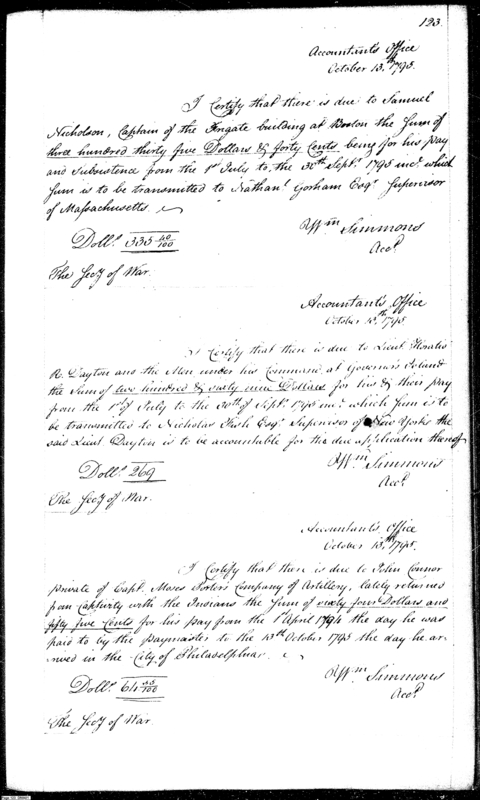 123.
Accountant's Office
October 13.th 1795.
I Certify that there is due to Samuel
Nicholson, Captain of the Frigate building at Boston the Sum of
three hundred thirty five Dollars & forty Cents being for his pay
and subsistence from the 1st July to the 30th Sept.r 1795 inc.e which
Sum is to be transmitted to Nathan.l Gorham Esq.r Supervisor
of Massachusetts.
Doll.s 335 40/100
Wm Simmons
Acc.t
The Secy of War.
Accountant's Office
October 13.th 1795.
I Certify that there is due to Lieut Horatio
R. Dayton and the Men under his Command at Governor's Island
the Sum of two hundred & sixty nine Dollars for his & their pay
from the 1st of July to the 30th of Sept.r 1795 inc.e which Sum is to
be transmitted to Nicholas Fish Esq.r Supervisor of New York the
said Lieut Dayton is to be accountable for the due application thereof
Doll.s 269
Wm Simmons
Acc.t
The Secy of War.
Accountant's Office
October 13.th 1795.
I Certify that there is due to John Connor
private of Capt. Moses Porter's Company of Artillery, lately returned
from Captivity with the Indians the Sum of sixty four Dollars and
fifty five Cents for his pay from the 1st April 1794 the day he was
paid to by the paymaster to the 13th October 1795 the day he ar-
rived in the City of Philadelphia.
Doll.s 64 55/100
Wm Simmons
Acc.t
The Secy of War.